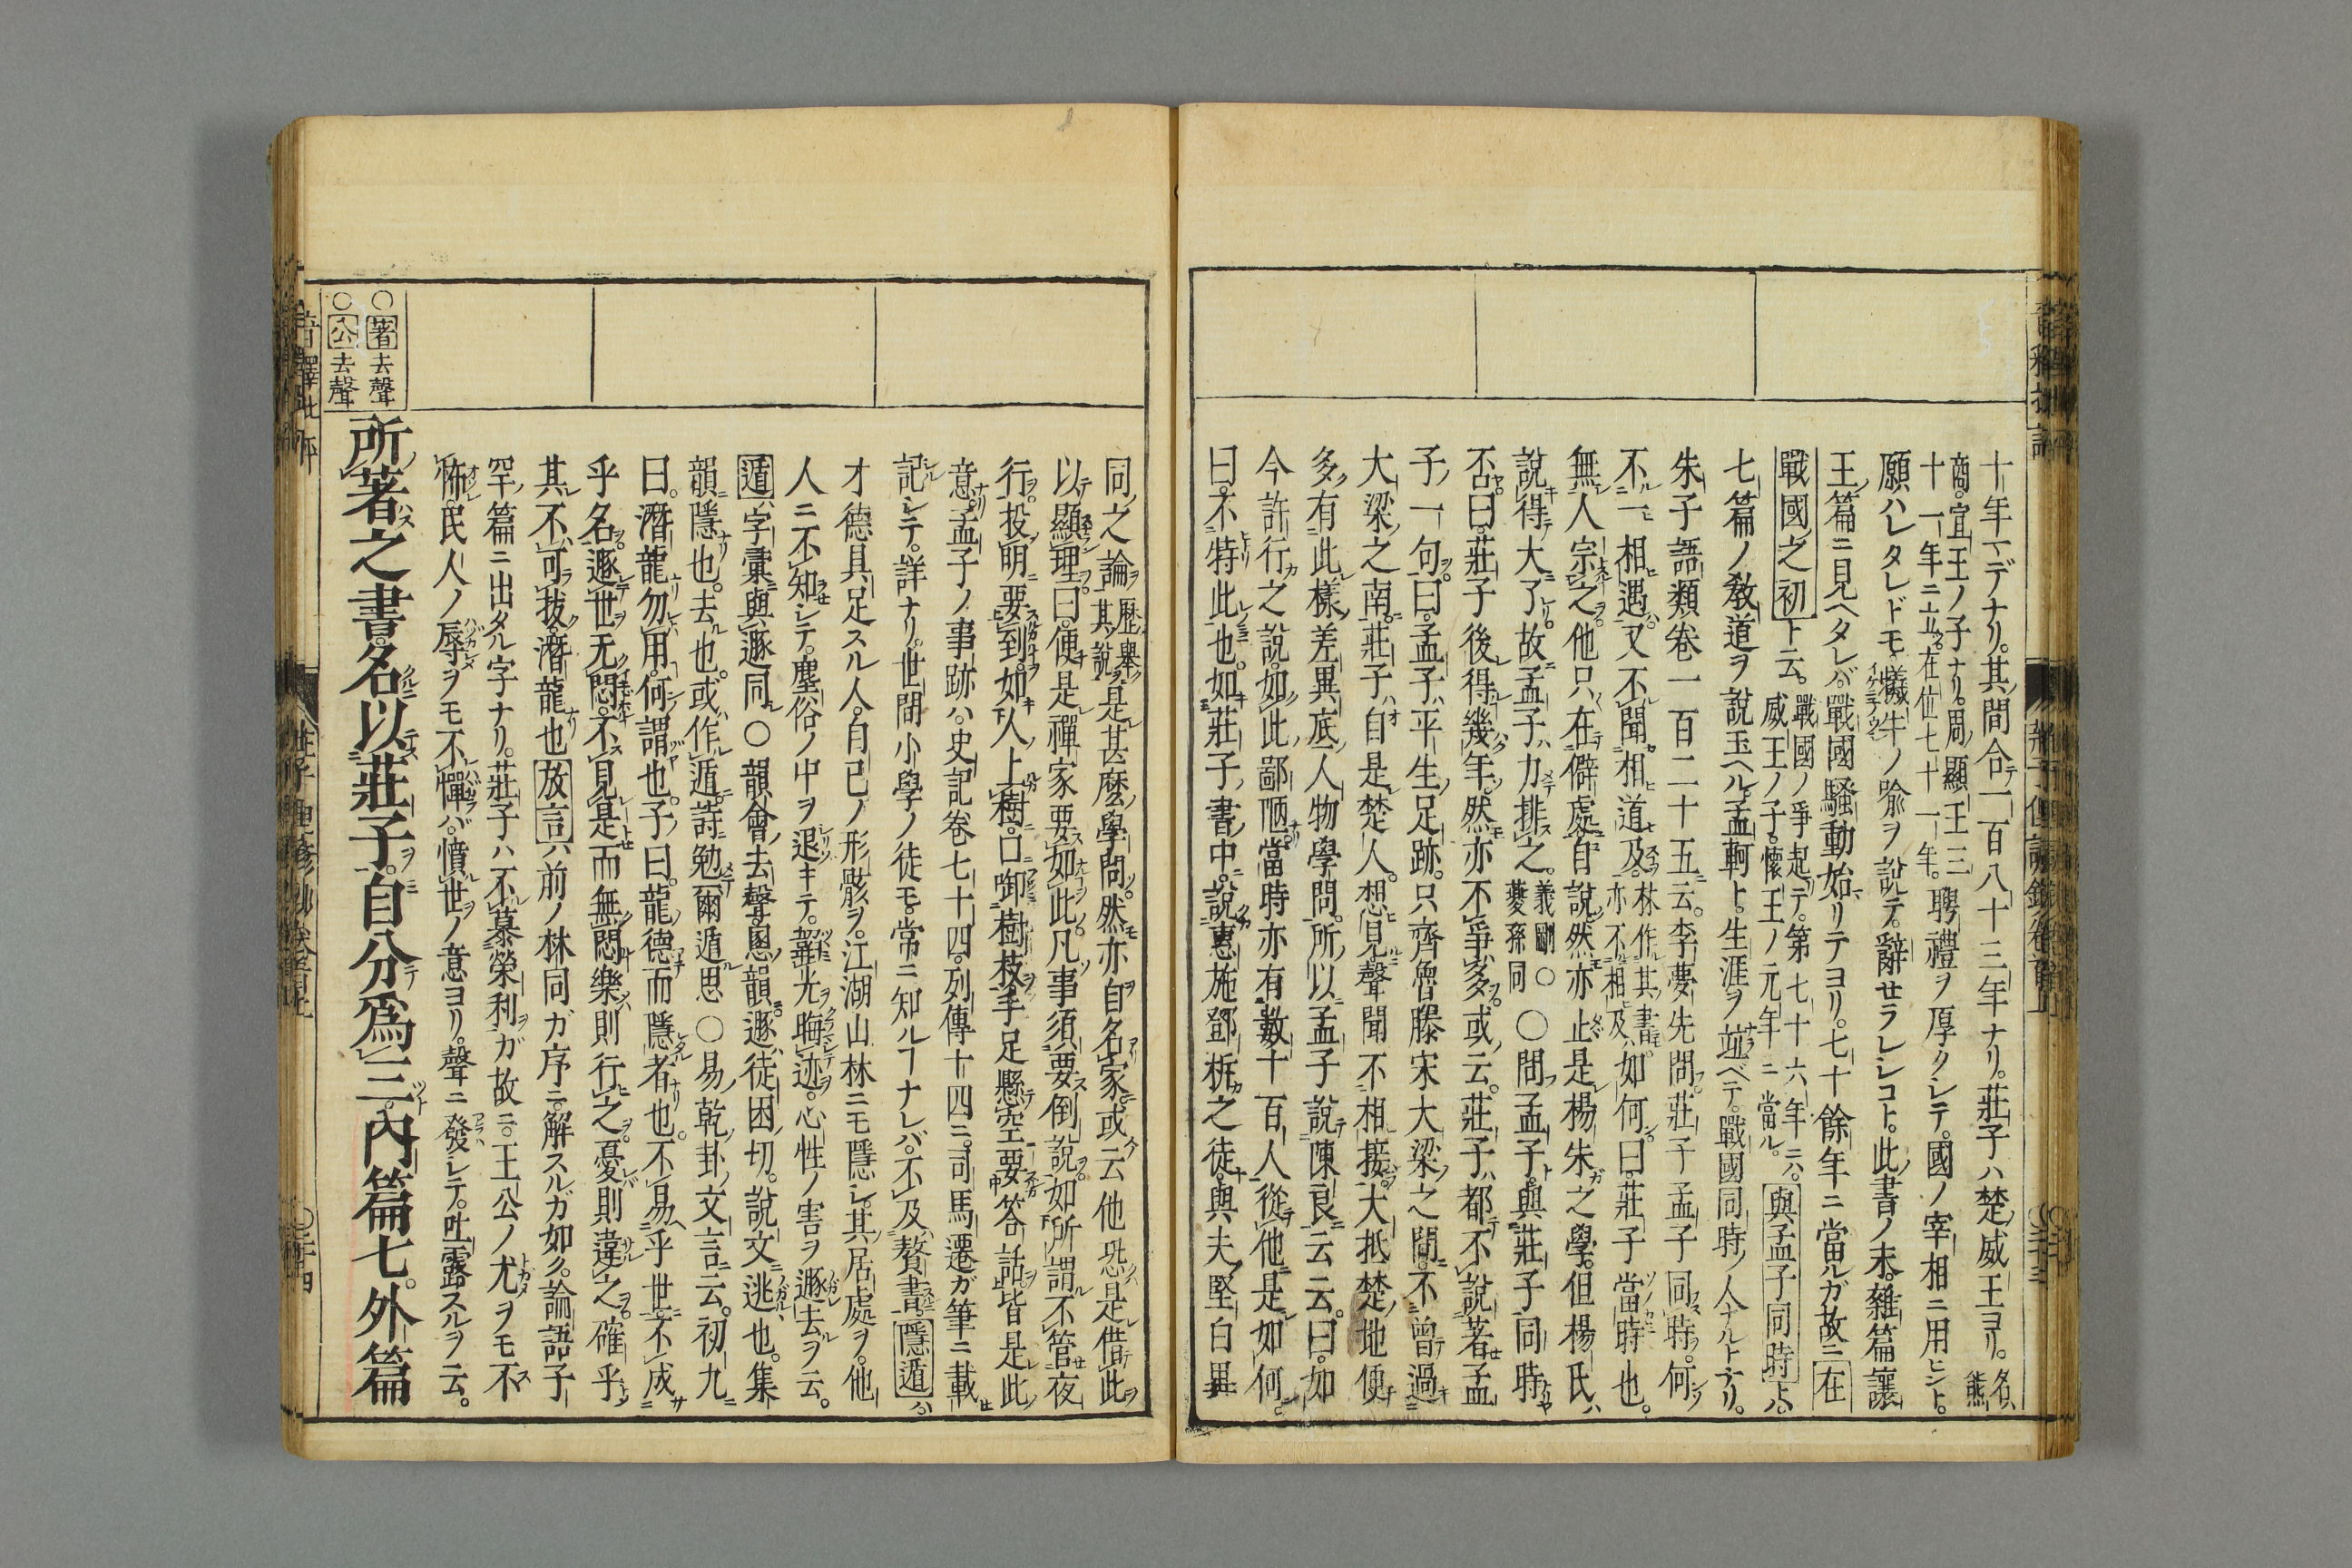 十年マデナリ。其間合一百八十三年ナリ。莊子ハ楚ノ威王ヨリ。名ハ熊
商。宣王ノ子ナリ。周ノ顯王三十一年ニ立。在位七十一年。聘禮ヲ厚クシテ。國ノ宰相ニ用ヒント。
願ハレタレドモ犧牛ノ喩ヲ說テ。辭セラレシコト。此書ノ末。雜篇讓
王篇ニ見ヘタレバ。戰國騷動始リテヨリ。七十餘年ニ當ルガ故ニ在
戰國之初ト云。戰國ノ爭起リテ。第七十六年ニハ。威王ノ子。懷王ノ元年ニ當ル。與孟子同時トハ。
七篇ノ敎道ヲ說玉ヘル。孟軻ト。生涯ヲ竝ベテ。戰國同時ノ人ナルトナリ。
朱子語類卷一百二十五云。李夢先問。莊子孟子同時。何
不一相遇。又不聞相道及。林作其書亦不相及。如何。曰。莊子當時也。
無人宗之。他只在僻處自說。然亦止是楊朱之學。但楊氏
說得大了。故孟子力排之。義剛夔孫同○問孟子與莊子同時
否。曰。莊子後得幾年。然亦不爭多。或云。莊子都不說著孟
子一句。曰。孟子平生足跡。只齊魯滕宋大梁之間。不曾過
大梁之南。莊子自是楚人。想見聲聞不相接。大抵楚地便
多有此樣差異底人物學問。所以孟子說陳良云云。曰。如
今許行之說。如此鄙陋。當時亦有數十百人從他。是如何。
曰。不特此也。如莊子書中。說惠施鄧析之徒。與夫堅白異
同之論歷擧其說是甚麽學問。然亦自名家。或云他恐是借此
以顯理。曰。便是禪家要如此。凡事須要倒說。如所謂不管夜
行。投明要到。如人上樹。口啣樹枝。手足懸空。要答話。皆是此
意。孟子ノ事跡ハ。史記卷七十四。列傳十四ニ。司馬遷ガ筆ニ載
記シテ。詳ナリ。世間小學ノ徒モ。常ニ知ルコトナレバ。不及贅書。隱遁ハ
才德具足スル人。自己ノ形骸ヲ。江湖山林ニモ隱シ。其居處ヲ。他
人ニ不知シテ。塵俗ノ中ヲ退キテ。韜光晦迹。心性ノ害ヲ遯去ルヲ云。
遁字彙與遯同○韻會去聲。慁韻遯。徒困切。說文逃也。集
韻隱也。去也。或作遁。詩勉爾遁思○易乾卦文言云。初九
曰。潛龍勿用。何謂也。子曰。龍德而隱者也。不易乎世。不成
乎名。遯世无悶。不見是而無悶。樂則行之。憂則違之。確乎
其不可拔。潛龍也放言ハ前ノ林同ガ序ニ。解スルガ如ク。論語子
罕篇ニ出タル字ナリ。莊子ハ不慕榮利ガ故ニ。王公ノ尤ヲモ不
怖。民人ノ辱ヲモ不憚バ。憤世ノ意ヨリ。聲ニ發シテ。吐露スルヲ云。
○著去聲
○公去聲
所著之書。名以莊子。自分爲三。內篇七。外篇